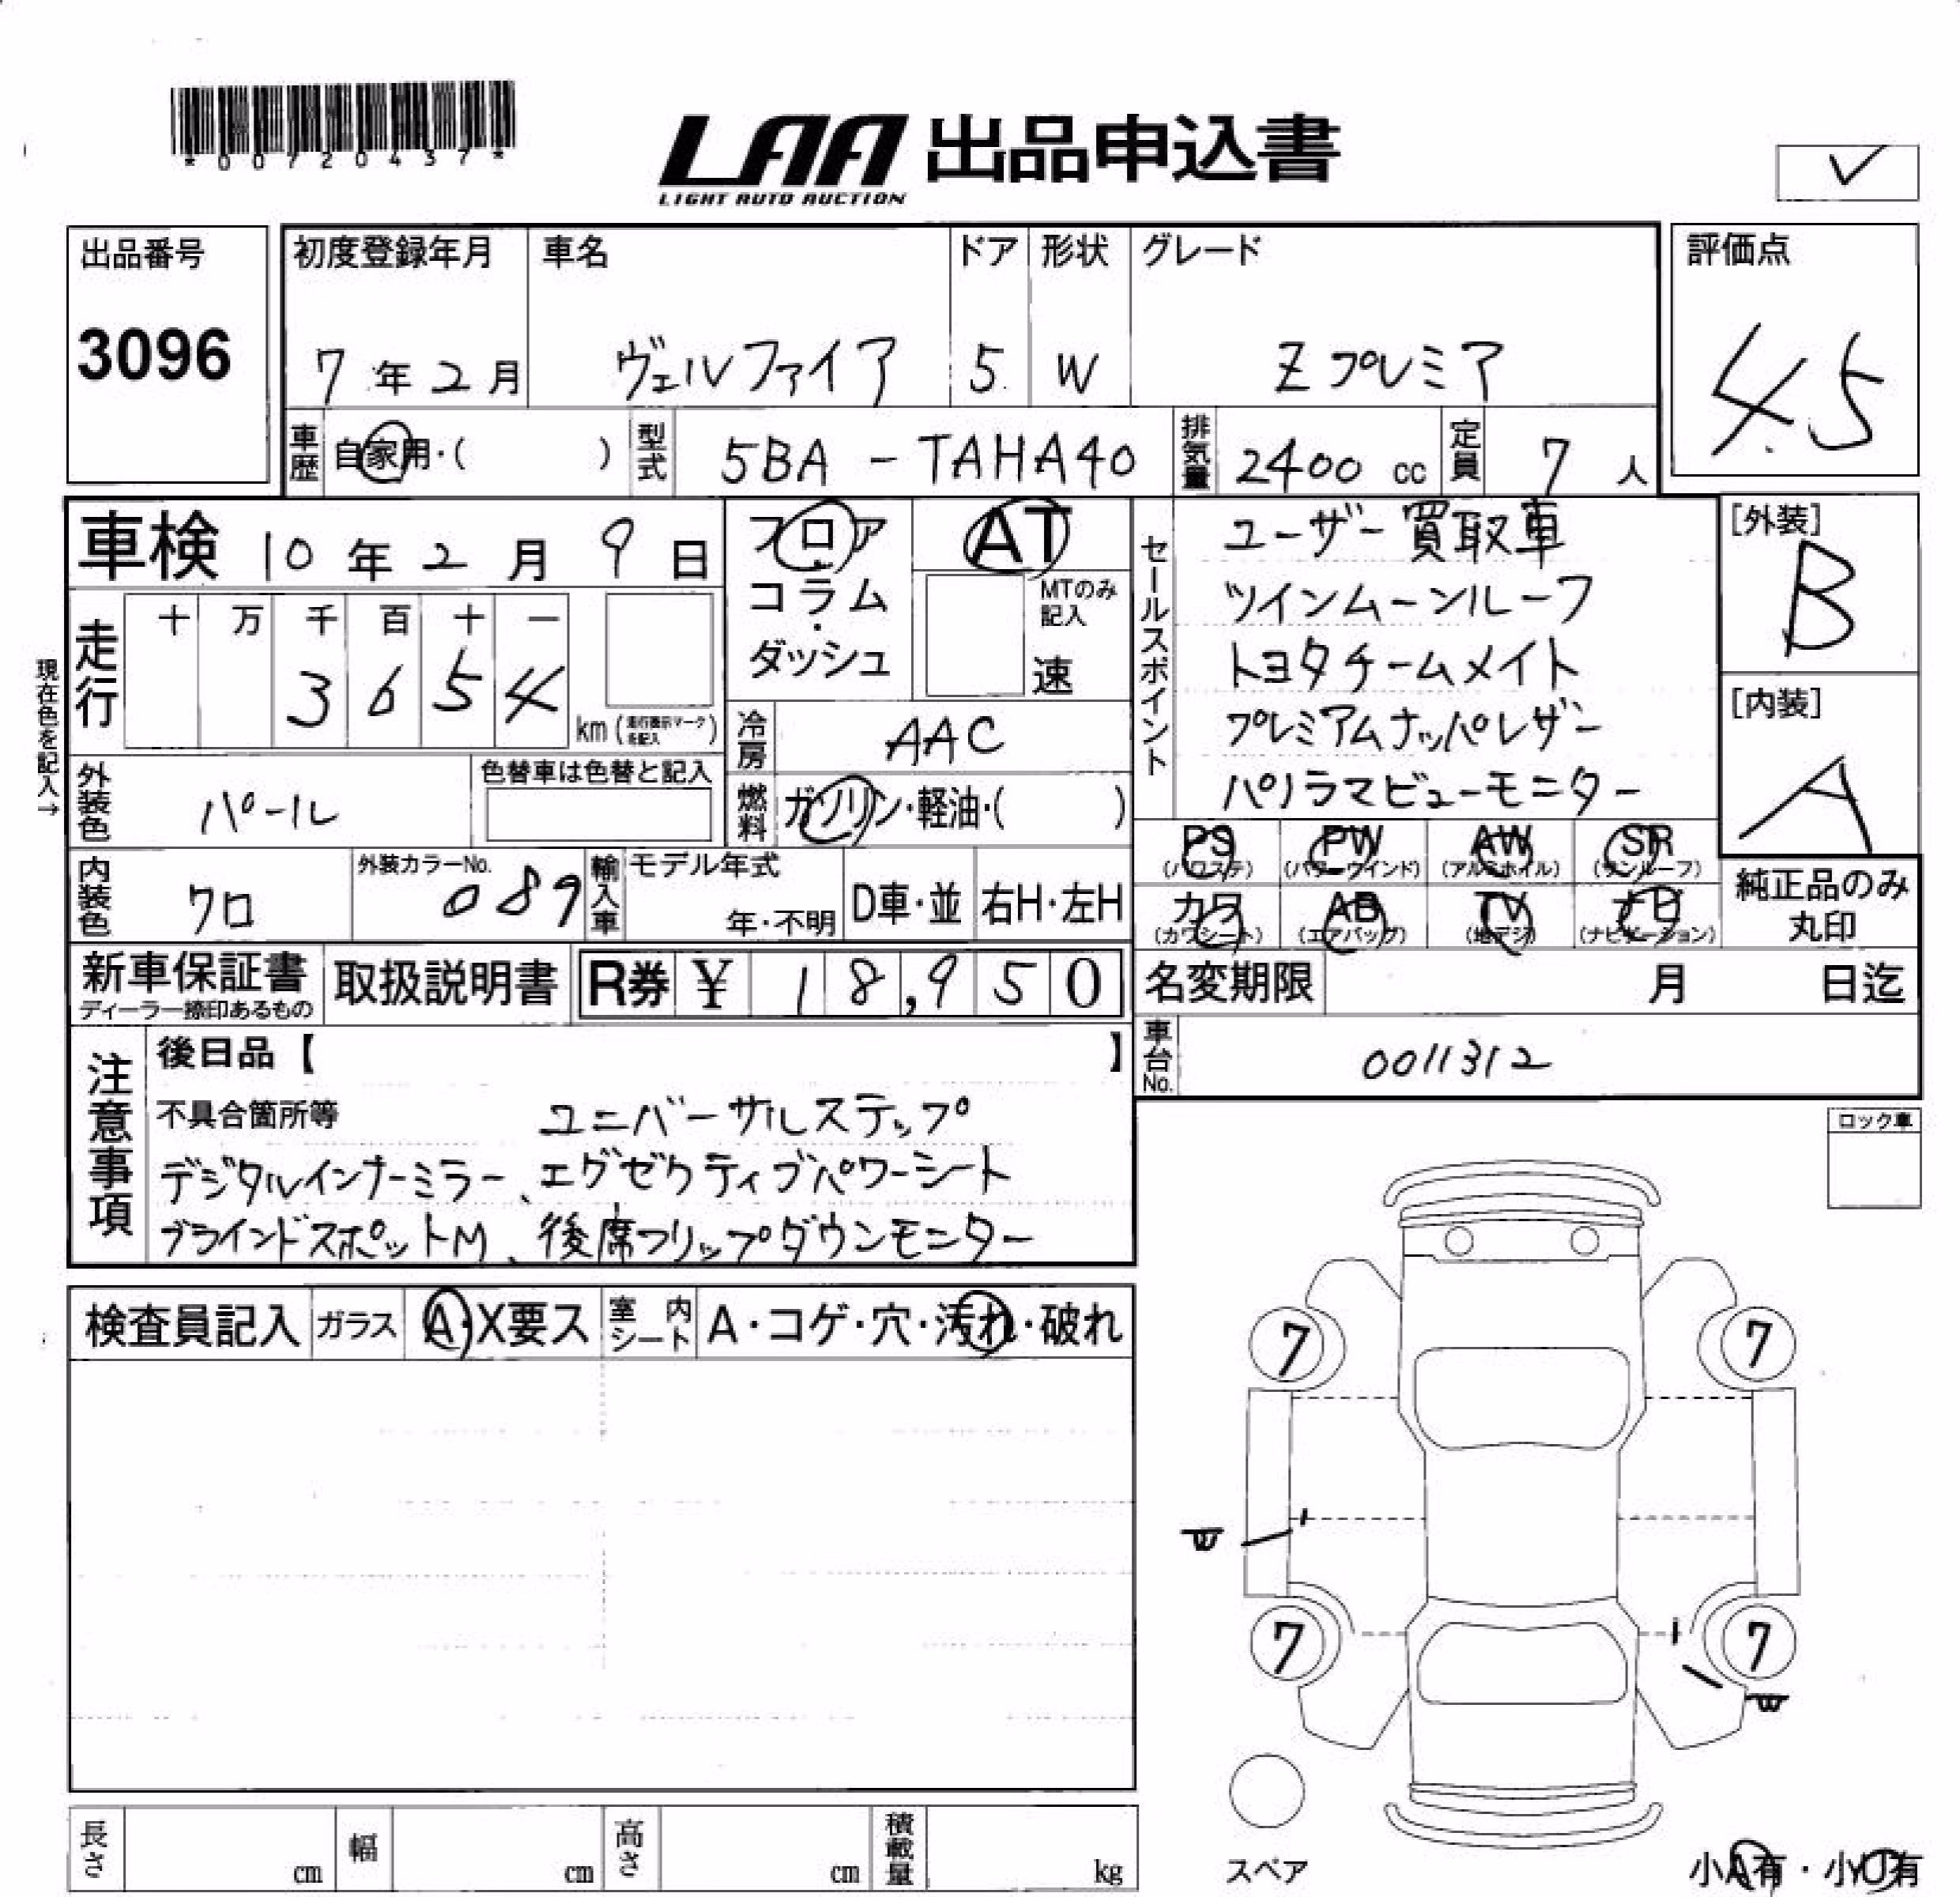 *00720437*
LAA 出品申込書
LIGHT AUTO AUCTION
出品番号
3096
初度登録年月
7年2月
車名
ヴェルファイア
ドア
5
形状
W
グレード
Zプレミア
評価点
4.5
車歴
自家用・( )
型式
5BA-TAHA40
排気量
2400 cc
定員
7人
車検 10年2月9日
フロア
コラム
・
ダッシュ
AT
MTのみ
記入
速
セールスポイント
ユーザー買取車
ツインムーンルーフ
トヨタチームメイト
プレミアムナッパレザー
パノラマビューモニター
[外装]
B
[内装]
A
現在色を記入→
走行
十 万 千 百 十 一
3 6 5 4
km (走行表示マークを記入)
冷房
AAC
外装色
パール
色替車は色替と記入
燃料
ガソリン・軽油・( )
PS (パワステ)
PW (パワーウインド)
AW (アルミホイル)
SR (サンルーフ)
カワ (カワシート)
AB (エアバッグ)
TV (地デジ)
ナビ (ナビゲーション)
純正品のみ
丸印
内装色
クロ
外装カラーNo.
089
輸入車
モデル年式
年・不明
D車・並
右H・左H
新車保証書
ディーラー捺印あるもの
取扱説明書
R券 ¥ 18,950
名変期限 月 日迄
車台No.
0011312
注意事項
後日品【 】
不具合箇所等 ユニバーサルステップ
デジタルインナーミラー、エグゼクティブパワーシート
ブラインドスポットM、後席フリップダウンモニター
ロック車
検査員記入
ガラス
A・X要ス
室内シート
A・コゲ・穴・汚れ・破れ
7
7
7
7
スペア
小A有・小U有
長さ cm
幅 cm
高さ cm
積載量 kg